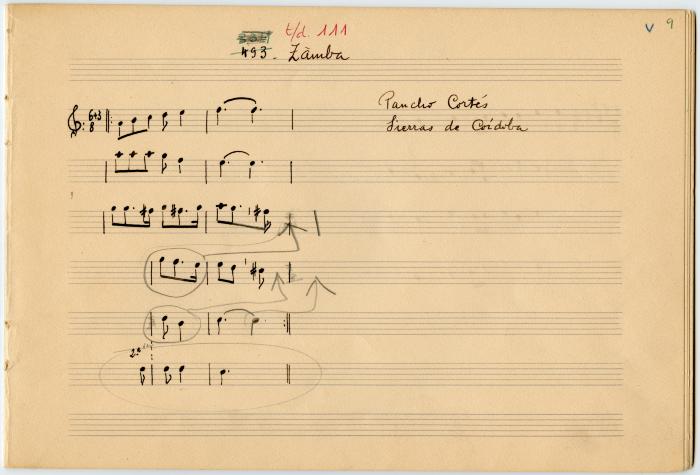 t/d. 111
493. Zàmba
v 9
Pancho Cortés
Sierras de Córdoba
6+3
8
2ª